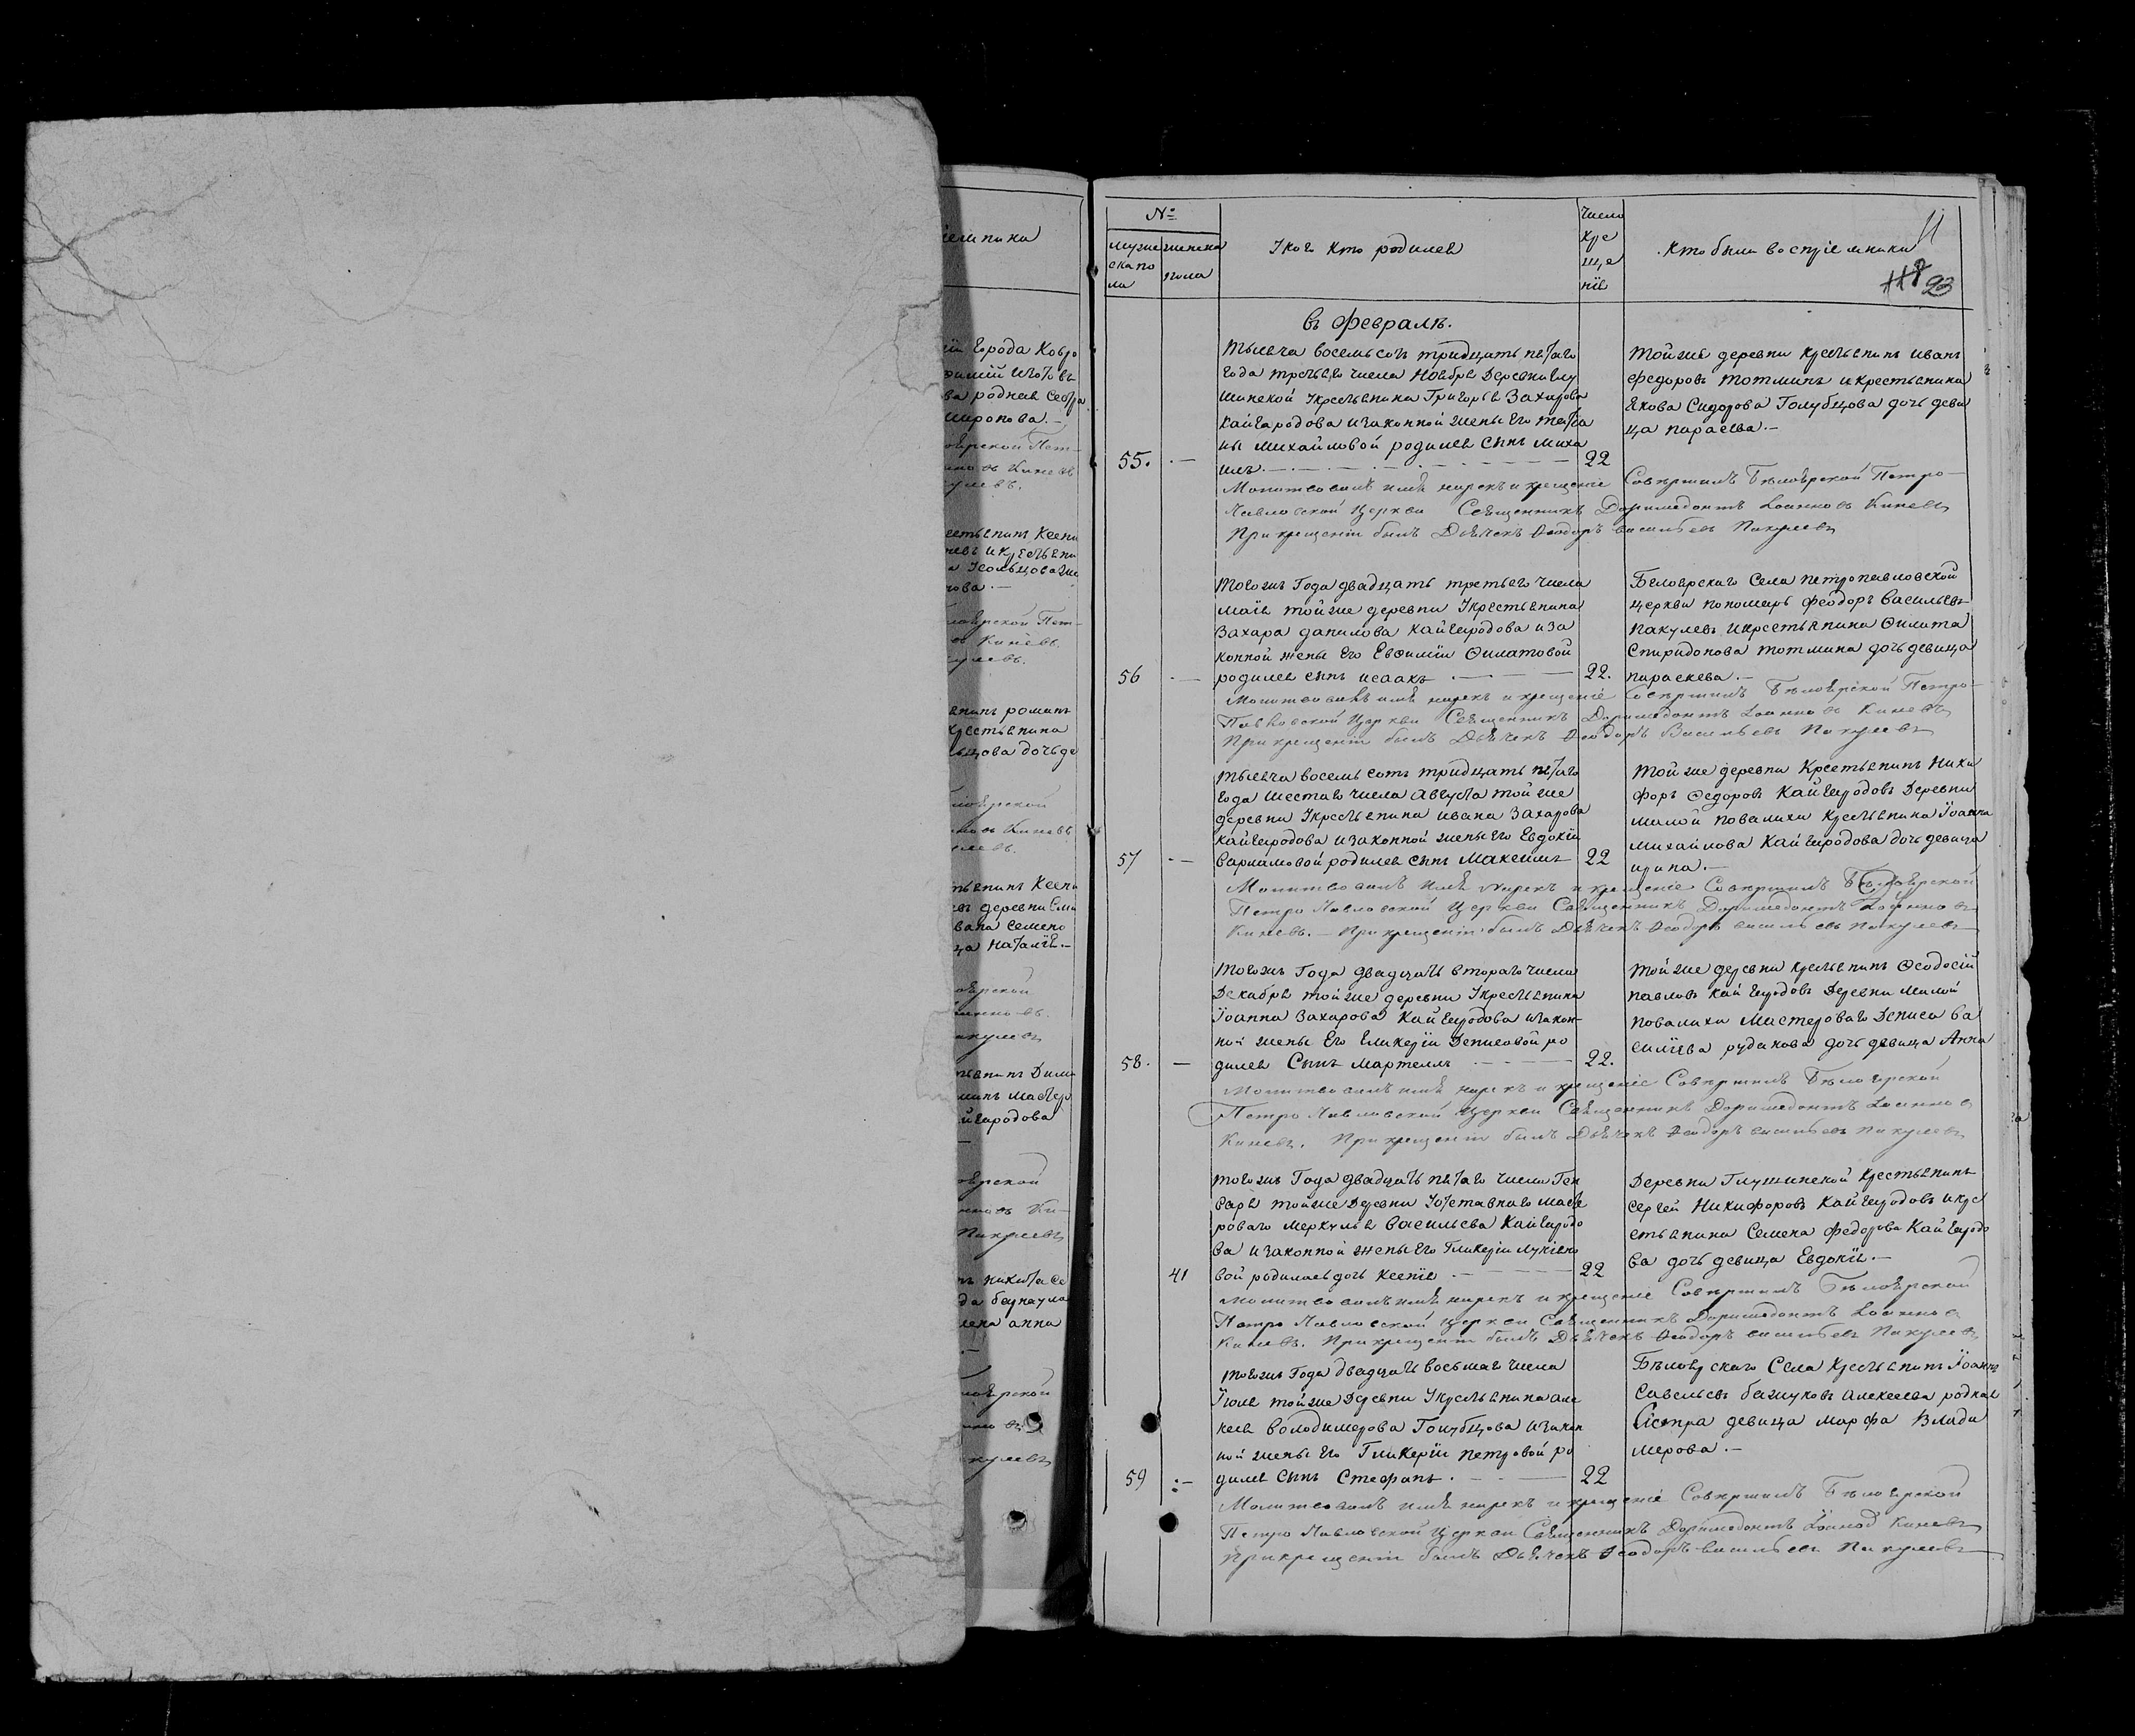 №
мужеска пола
женска пола
Укого кто родился
Число крещенія
Кто были воспріемники
11
23
въ Февралѣ.
тысяча восемь сотъ тридцать пятаго
года третьяго числа Ноября Деревни Глу
шинской Укрестьянина Григорья Захарова
Кайгародова изаконной жены Его татья
ны Михайловой родился сынъ миха
55. илъ. 22
тойже деревни крестьянинъ иванъ
федоровъ тотминъ и крестьянина
Якова Сидорова Голубцова дочь деви
ца параскева
Молитвовалъ имя нарекъ и крещеніе Совершилъ Бѣлоярской Петро-
Павловской Церкви Священникъ Доримедонтъ Іоанновъ Киневъ
При крещеніи былъ Дьячекъ Ѳеодоръ васильевъ Пакулевъ
Тогожъ Года двадцать третьяго числа
Маія тойже деревни Укрестьянина
Захара данилова Кайгародова иза
конной жены Его Евѳиміи Филатовой
56 родился сынъ исаакъ 22.
Белоярскаго Села петропавловской
церкви пономарь феодоръ Васильевъ
Пакулевъ икрестьянина Филата
Спиридонова тотмина дочь девица
параскева.
Молитвовалъ имя нарекъ и крещеніе Совершилъ Бѣлоярской Петро-
Павловской Церкви Священникъ Доримедонтъ Іоанновъ Киневъ
При крещеніи былъ Дьячекъ Ѳеодоръ Васильевъ Пакулевъ
тысяча восемь сотъ тридцать пятаго
года шестаго числа Августа тойже
деревни Укрестьянина ивана Захарова
Кайгародова изаконной жены его Евдокіи
57 Варламовой родился сынъ Максимъ 22
Тойже деревни Крестьянинъ Ники
форъ Федоровъ Кайгародовъ Деревни
малой повалихи крестьянина Іоанна
михайлова Кайгародова дочь девица
ирина.
Молитвовалъ имя нарекъ и крещеніе Совершилъ Бѣлоярской
Петро Павловской Церкви Священникъ Доримедонтъ Іоанновъ
Киневъ. При крещеніи былъ Дьячекъ Ѳеодоръ васильевъ Пакулевъ
Тогожъ Года двадцать втораго числа
Декабря тойже деревни Укрестьянина
Іоанна Захарова Кайгародова изакон-
ной жены Его Гликеріи Денисовой ро
58. дился Сынъ Мартемъ 22.
тойже деревни крестьянинъ Феодосій
павловъ кайгародовъ Деревни Малой
повалихи Мастероваго Дениса ва
силіева рудакова дочь девица Анна
Молитвовалъ имя нарекъ и крещеніе Совершилъ Бѣлоярской
Петро Павловской Церкви Священникъ Доримедонтъ Іоанновъ
Киневъ. При крещеніи былъ Дьячекъ Ѳеодоръ васильевъ Пакулевъ
тогожъ Года двадцать пятаго числа Ген
варя тойже Деревни Уотставнаго масте
роваго Меркулья Васильева Кайгародо
ва изаконной жены его Гликеріи лукіяно
41 вой родилась дочь Ксенія 22
Деревни Глушинской Крестьянинъ
Сергей Никифоровъ Кайгародовъ икре
стьянина Семена Федорова Кайгародо
ва дочь девица Евдокія.
Молитвовалъ имя нарекъ и крещеніе Совершилъ Бѣлоярской
Петро Павловской Церкви Священникъ Доримедонтъ Іоанновъ
Киневъ. При крещеніи былъ Дьячекъ Ѳеодоръ васильевъ Пакулевъ
тогожъ Года двадцать восьмаго числа
Іюля тойже Деревни Укрестьянина але
ксея Володимерова Голубцова изакон
ной жены Его Гликеріи петровой ро
59 дился сынъ Стефанъ. 22
Бѣлоярскаго Села Крестьянинъ Іоаннъ
Савельевъ бажуковъ Алексеева родная
Сестра девица Марфа Влади
мерова.
Молитвовалъ имя нарекъ и крещеніе Совершилъ Бѣлоярской
Петро Павловской Церкви Священникъ Доримедонтъ Іоанновъ Киневъ
При крещеніи былъ Дьячекъ Ѳеодоръ васильевъ Пакулевъ